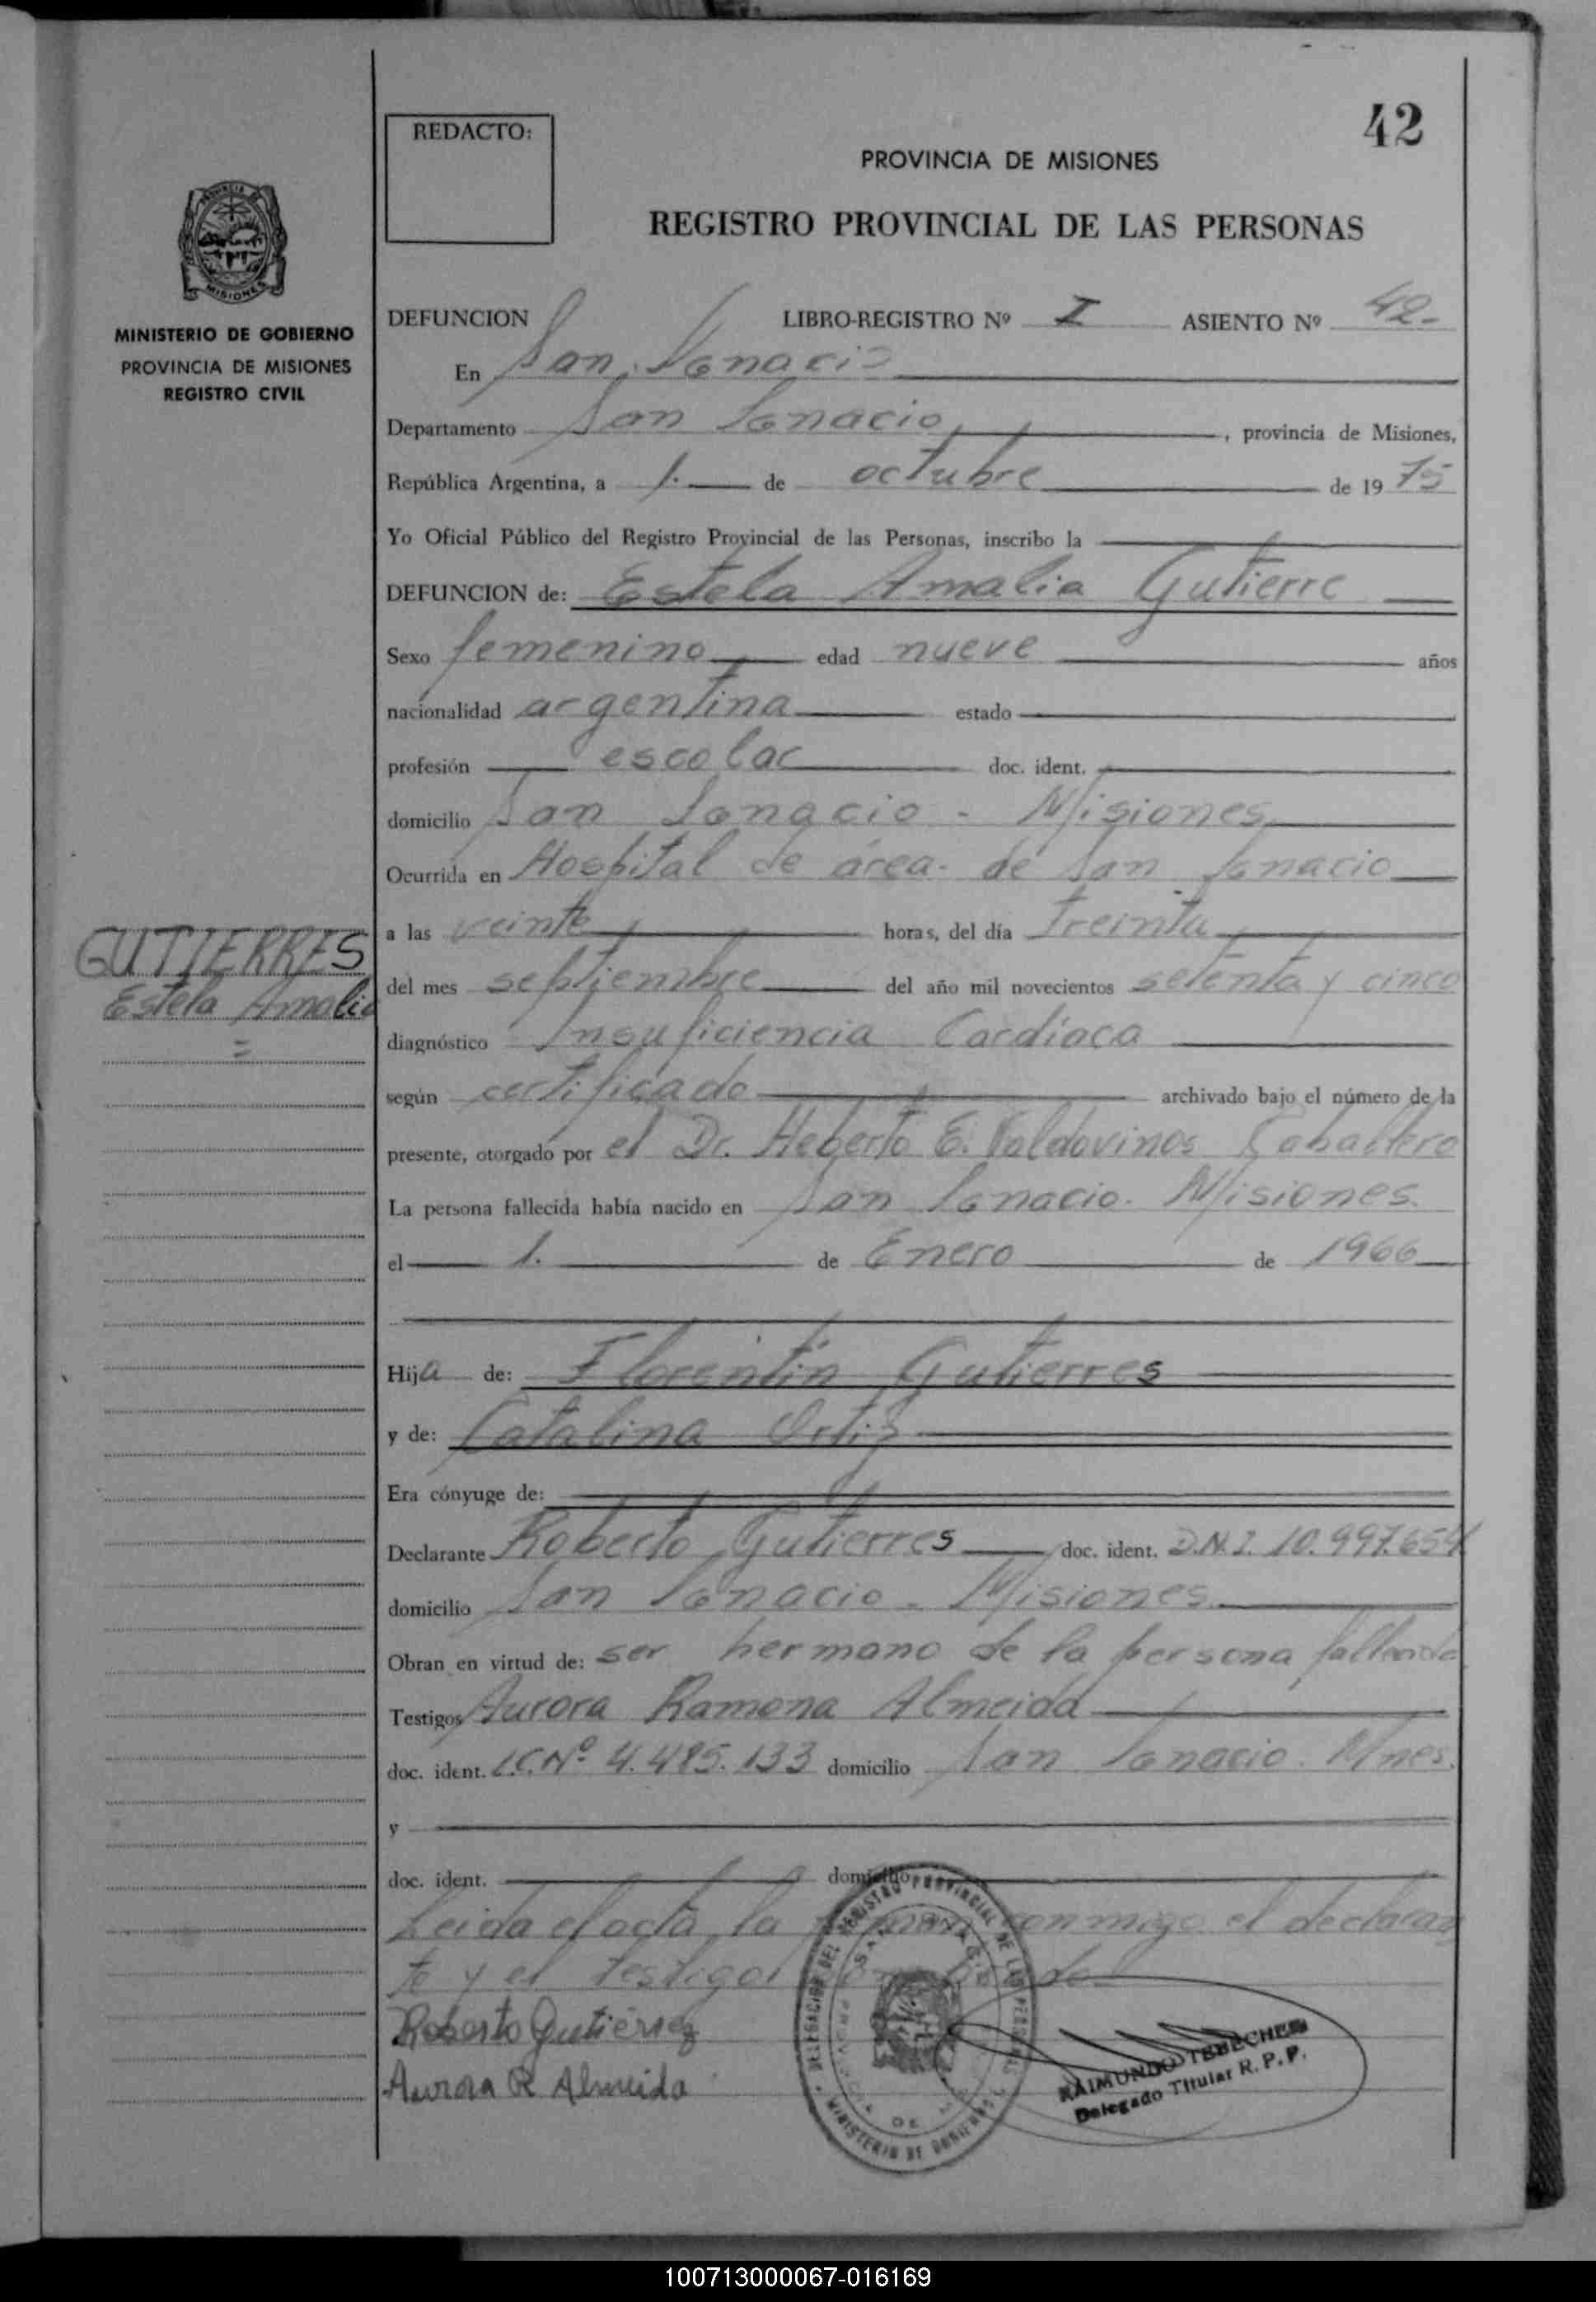 42
REDACTO:
PROVINCIA DE MISIONES
REGISTRO PROVINCIAL DE LAS PERSONAS
MISIONES
MINISTERIO DE GOBIERNO
PROVINCIA DE MISIONES
REGISTRO CIVIL
DEFUNCION LIBRO-REGISTRO Nº I ASIENTO Nº 42-
En San Ignacio
Departamento San Ignacio, provincia de Misiones,
República Argentina, a 1. de octubre de 1975
Yo Oficial Público del Registro Provincial de las Personas, inscribo la
DEFUNCION de: Estela Amalia Gutierre
Sexo femenino edad nueve años
nacionalidad argentina estado
profesión escolar doc. ident.
domicilio San Ignacio - Misiones
Ocurrida en Hospital de área- de San Ignacio
GUTIERRES
Estela Amalia
=
a las veinte horas, del día treinta
del mes septiembre del año mil novecientos setenta y cinco
diagnóstico Insuficiencia Cardíaca
según certificado archivado bajo el número de la
presente, otorgado por el Dr. Heberto E. Valdovinos Caballero
La persona fallecida había nacido en San Ignacio- Misiones.
el 1. de Enero de 1966
Hija de: Florentín Gutierres
y de: Catalina Ortiz
Era cónyuge de:
Declarante Roberto Gutierres doc. ident. D.N.I. 10.997.654
domicilio San Ignacio - Misiones
Obran en virtud de: ser hermano de la persona fallecida
Testigos Aurora Ramona Almeida
doc. ident. L.C.Nº 4.485.133 domicilio San Ignacio. Mnes.
y
doc. ident. domicilio
Leida el acta, la conmigo el declaran
te y el testigo
Roberto Gutiérrez
Aurora R Almeida
DELEGACION DEL REGISTRO PROVINCIAL DE LAS PERSONAS
MINISTERIO DE GOBIERNO
RAIMUNDO TEBECHER
Delegado Titular R. P. P.
100713000067-016169